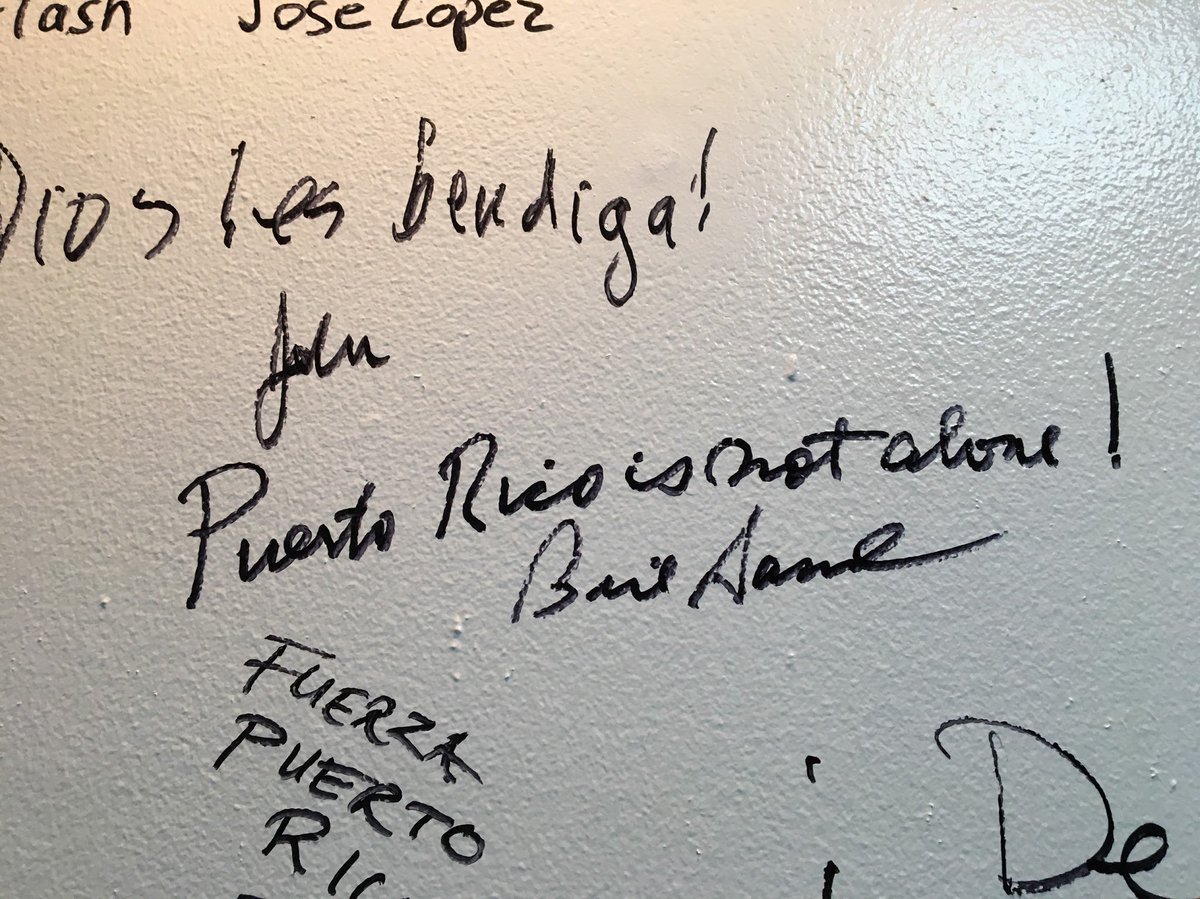 flash Jose Lopez
Dios les bendiga!
John
Puerto Rico is not alone!
FUERZA
PUERTO
RIC
De